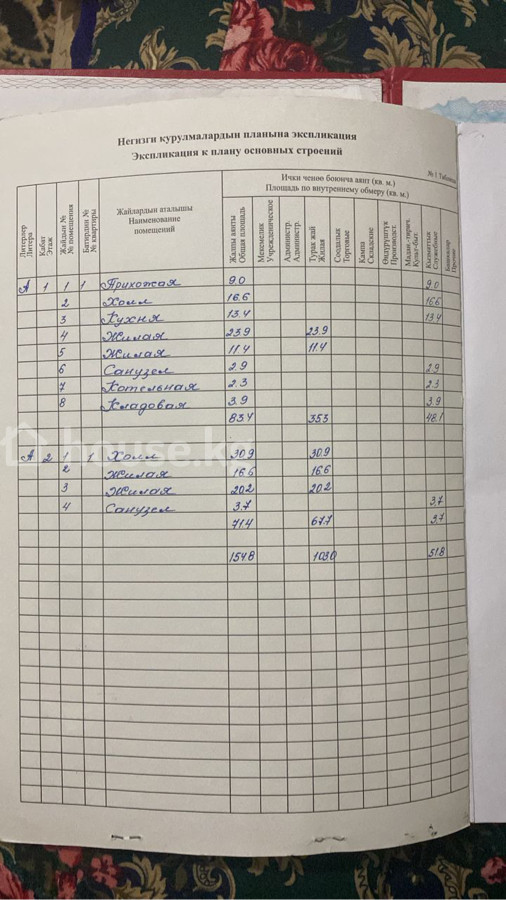 Негизги курулмалардын планына экспликация
Экспликация к плану основных строений
№ 1 Таблица
Литерлер Литера
Кабат Этаж
Жайдын № № помещения
Батирдин № № квартиры
Жайлардын аталышы Наименование помещений
Ички ченөө боюнча аянт (кв. м.)
Площадь по внутреннему обмеру (кв. м.)
Жалпы аянты Общая площадь
Мекемелик Учрежденическое
Администр. Администр.
Турак жай Жилая
Соодалык Торговые
Кампа Складские
Өндүрүштүк Производст.
Мадан.-тирич. Культ-быт.
Кызматтык Служебные
Башкалар Прочие
А 1 1 1 Прихожая 9.0 9.0
2 Холл 16.6 16.6
3 Кухня 13.4 13.4
4 Жилая 23.9 23.9
5 Жилая 11.4 11.4
6 Санузел 2.9 2.9
7 Котельная 2.3 2.3
8 Кладовая 3.9 3.9
83.4 35.3 48.1
А 2 1 1 Холл 30.9 30.9
2 Жилая 16.6 16.6
3 Жилая 20.2 20.2
4 Санузел 3.7 3.7
71.4 67.7 3.7
154.8 103.0 51.8
house.kg